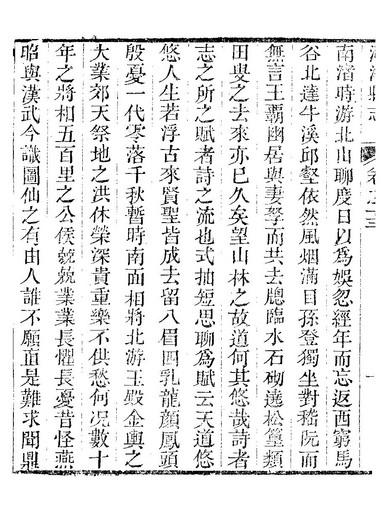 縣志 卷之
南渚時游北山聊度日以爲娛忽經年而忘返西窮馬
谷北達牛溪邱壑依然風烟滿目孫登獨坐對嵇阮而
無言王霸幽居與妻孥而共去牕臨水石砌遶松篁類
田叟之去來亦已久矣望山林之故道何其悠哉詩者
志之所之賦者詩之流也式抽短思聊爲賦云天道悠
悠人生若浮古來賢聖皆成去留八眉四乳龍顏鳳頭
殷憂一代零落千秋暫時南面相將北游玉殿金輿之
大業郊天祭地之洪休榮深貴重樂不供愁何况數十
年之將相五百里之公侯兢兢業業長懼長憂昔怪燕
昭與漢武今識圖仙之有由人誰不願直是難求聞鼎